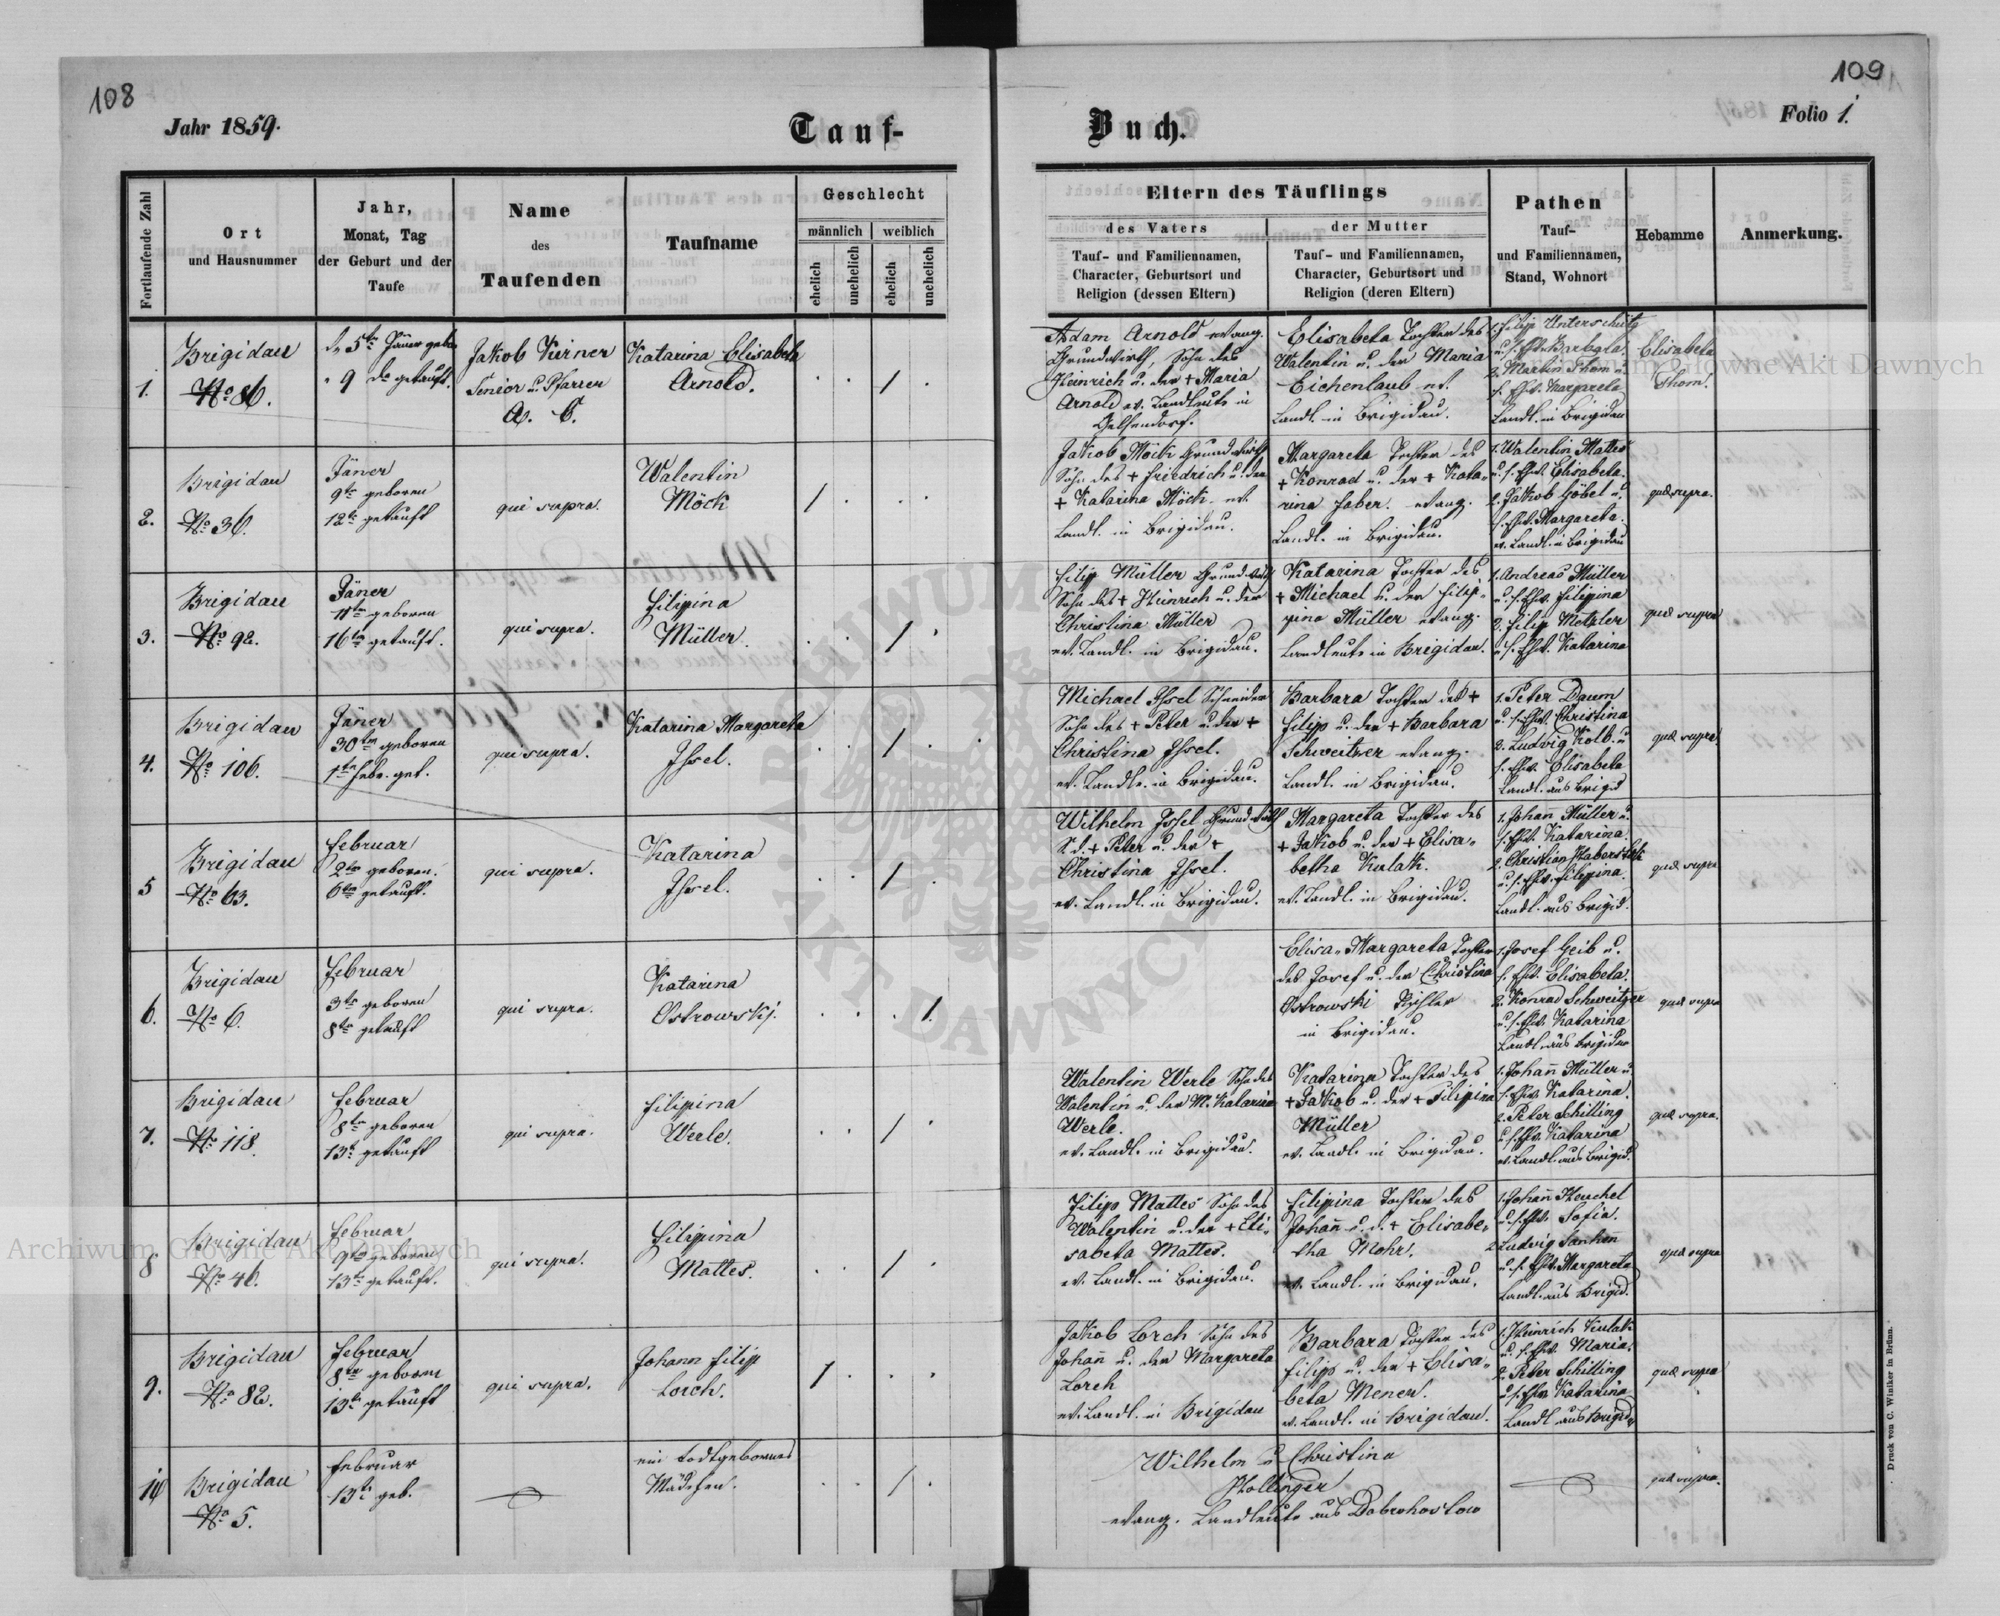 108
109
Jahr 1859.
Tauf-
Buch.
Folio 1.
Fortlaufende Zahl
Ort
und Hausnummer
Jahr,
Monat, Tag
der Geburt und der
Taufe
Name
des
Taufenden
Taufname
Geschlecht
männlich
weiblich
ehelich
unehelich
ehelich
unehelich
Eltern des Täuflings
des Vaters
Tauf- und Familiennamen,
Character, Geburtsort und
Religion (dessen Eltern)
der Mutter
Tauf- und Familiennamen,
Character, Geburtsort und
Religion (deren Eltern)
Pathen
Tauf-
und Familiennamen,
Stand, Wohnort
Hebamme
Anmerkung.
1.
Brigidau
No 86.
5te Jäner geb.
9 do getauft.
Jakob Kerner
Senior u. Pfarrer
A. C.
Katarina Elisabeta
Arnold.
Adam Arnold evang.
Grundwirth, Sohn des
Heinrich u. der + Maria
Arnold ev. Landleute in
Gelsendorf.
Elisabeta Tochter des
Valentin u. der Maria
Eichenlaub ev.
Landl. in Brigidau.
1. Filip Unterschütz
u. s. Ehw. Barbara
2. Martin Thom u.
s. Ehw. Margareta
Landl. in Brigidau
Elisabeta
Thom.
2.
Brigidau
No 36.
Jäner
9te geboren
12te getauft
qui supra.
Walentin
Möck
Jakob Möck Grundwirth
Sohn des + Friedrich u. der
+ Katarina Möck ev.
Landl. in Brigidau.
Margareta Tochter des
+ Konrad u. der + Kata-
rina Faber. evang.
Landl. in Brigidau.
1. Walentin Mattes
u. s. Ehw. Elisabeta.
2. Jakob Göbel u.
s. Ehw. Margareta.
ev. Landl. in Brigidau
quae supra.
3.
Brigidau
No 92.
Jäner
11ten geboren
16ten getauft.
qui supra.
Filipina
Müller.
Filip Müller Grundwirth
Sohn des + Heinrich u. der
Christina Müller
ev. Landl. in Brigidau.
Katarina Tochter des
+ Michael u. der Filip-
pina Müller evang.
Landleute in Brigidau.
1. Andreas Müller
u. s. Ehw. Filipina
2. Filip Metzler
u. s. Ehw. Katarina
quae supra
4.
Brigidau
No 106.
Jäner
30ten geboren
1ten Febr. get.
qui supra.
Katarina Margareta
Issel.
Michael Issel Schneider
Sohn des + Peter u. der +
Christina Issel.
ev. Landl. in Brigidau.
Barbara Tochter des +
Filip u. der + Barbara
Schweitzer evang.
Landl. in Brigidau.
1. Peter Daum
u. s. Ehw. Christina
2. Ludvig Kolb u.
s. Ehw. Elisabeta
Landl. aus Brigid
quae supra.
5
Brigidau
No 63.
Februar
2ten geboren.
6ten getauft.
qui supra.
Katarina
Issel.
Wilhelm Issel Grundwirth
S. d. + Peter u. der +
Christina Issel.
ev. Landl. in Brigidau.
Margareta Tochter des
+ Jakob u. der + Elisa-
betha Kulak.
ev. Landl. in Brigidau.
1. Johan̄ Müller u.
s. Ehw. Katarina.
2. Christian Haberstock
u. s. Ehw. Filippina.
Landl. aus Brigid.
quae supra
6.
Brigidau
No 6.
Februar
3te geboren
8te getauft
qui supra.
Katarina
Ostrowskj.
Elisa- Margareta Tochter
des Josef u. der Christina
Ostrowski
in Brigidau.
1. Josef Geib u.
s. Ehw. Elisabeta
2. Konrad Schweitzer
u. s. Ehw. Katarina
Landl. aus Brigidau
quae supra
7.
Brigidau
No 118.
Februar
8ten geboren
13te getauft
qui supra.
Filipina
Werle.
Walentin Werle Sohn des
Walentin u. der M. Katarina
Werle.
ev. Landl. in Brigidau.
Katarina Tochter des
+ Jakob u. der + Filipina
Müller
ev. Landl. in Brigidau.
1. Johan̄ Müller u
s. Ehw. Katarina.
2. Peter Schilling
u. s. Ehw. Katarina
ev. Landl. aus Brigid.
quae supra.
8
Brigidau
No 46.
Februar
9ten geboren
13te getauft.
qui supra.
Filipina
Mattes.
Filip Mattes Sohn des
Walentin u. der + Eli-
sabeta Mattes.
ev. Landl. in Brigidau.
Filipina Tochter des
Johan̄ u. d. + Elisabe-
tha Mohr.
ev. Landl. in Brigidau.
1. Johan̄ Heuchel
u. s. Ehw. Sofia.
2 Ludvig
u. s. Ehw. Margareta
Landl. aus Brigid.
quae supra
9.
Brigidau
No 82.
Februar
8te geboren
13te getauft
qui supra.
Johann Filip
Lorch.
Jakob Lorch Sohn des
Johan̄ u. der Margareta
Lorch
ev. Landl. in Brigidau
Barbara Tochter des
Filip u. der + Elisa-
beta Mener.
ev. Landl. in Brigidau.
1. Heinrich Kulak
u. s. Ehw. Maria.
2. Peter Schilling
u. s. Ehw. Katarina
Landl. aus Brigid.
quae supra
10
Brigidau
No 5.
Februar
13te geb.
ein todtgebornes
Mädchen.
Wilhelm u Christina
Hollinger
evang. Landleute aus Dobrohostow
quae supra.
Druck von C. Winiker in Brünn.
Archiwum Główne Akt Dawnych
ARCHIWUM
AKT DAWNYCH